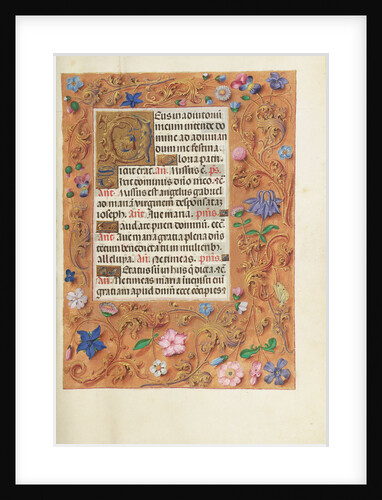 Eus in adiutoriū
meum intende do
mine ad adiuuan
dum me festina.
loria patri
Sicut erat. An. Missus ē. ps.
Dixit dominus dn̄o meo. ⁊c̄.
An. Missus est angelus gabriel
ad mariā virginem desponsatā
ioseph. Ant. Aue maria. psm̄s.
Laudate pueri dominū. ⁊c̄.
An. Aue maria gratia plena dn̄s
tecum benedicta tu in mulierib.
Alleluya. An. Ne timeas. psm̄s.
Letatus sū in hijs q̄ dicta. ⁊c̄.
An. Ne timeas maria inuenisti
gratiam apud dn̄m ecce cōcipies